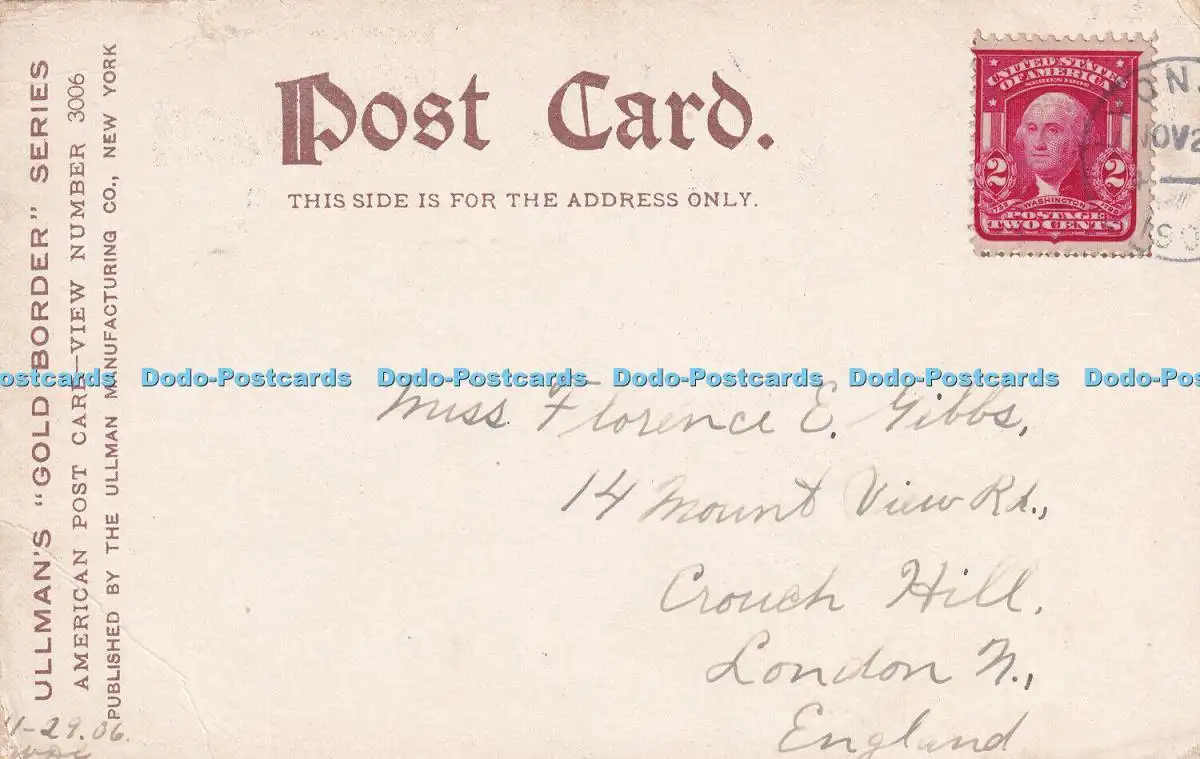 Post Card.
THIS SIDE IS FOR THE ADDRESS ONLY.
ULLMAN'S "GOLD BORDER" SERIES
AMERICAN POST CARD—VIEW NUMBER 3006
PUBLISHED BY THE ULLMAN MANUFACTURING CO., NEW YORK
UNITED STATES
OF AMERICA
SERIES 1902
2 2
WASHINGTON
POSTAGE
TWO CENTS
NOV 2
Dodo-Postcards Dodo-Postcards Dodo-Postcards Dodo-Postcards
Miss. Florence E. Gibbs,
14 Mount View Rd.,
Crouch Hill.
London N.,
England
11-29.06.